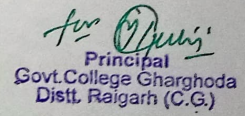 for
Principal
Govt.College Gharghoda
Distt. Raigarh (C.G.)